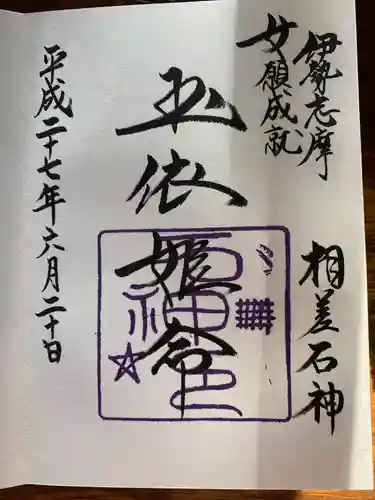 伊勢志摩
女願成就
相差石神
玉依姫命
石神さん
平成二十七年六月二十日